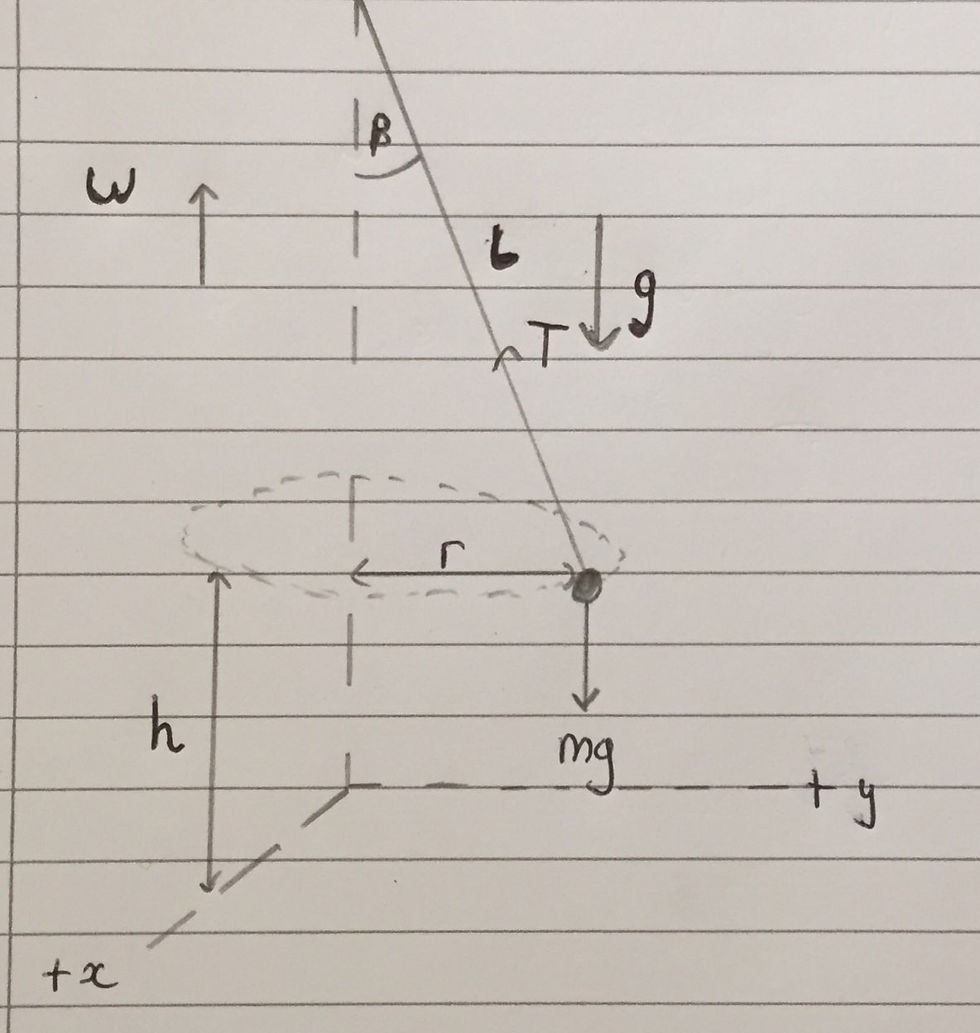 β
ω
L
g
T
r
h
mg
+ y
+x